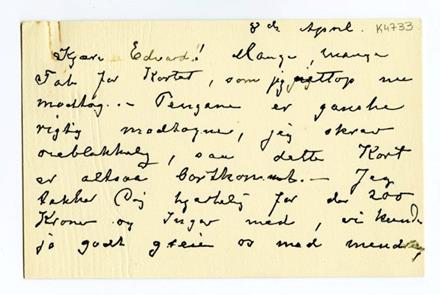 8de April. K4733
Kjære Edvard! Mange, mange
Tak for Kortet, som jeg nettop nu
modtog. – Pengene er ganske
rigtig modtagne, jeg skrev
øieblikkelig, saa dette Kort
er altsaa bortkommet. – Jeg
takker Dig hjertelig for de 200
Kroner og Inger med, vi kunde
jo godt greie os med mindre,